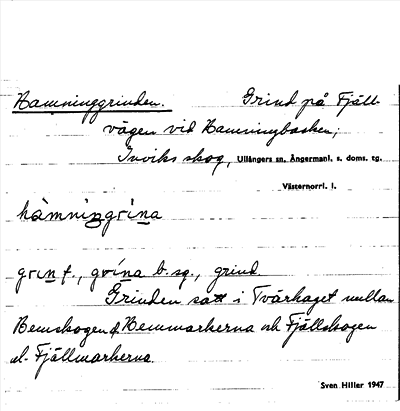 Hamninggrinden. Grind på Fjäll-
vägen vid Hamningbacken;
Inviks skog, Ullångers sn. Ångermanl. s. doms. tg.
Västernorrl. l.
hàmningrina
grin f., grína b. sg., grind.
Grinden satt i Tvärhaget mellan
Hemskogen & Hemmarkerna och Fjällskogen
el. Fjällmarkerna.
Sven Hiller 1947